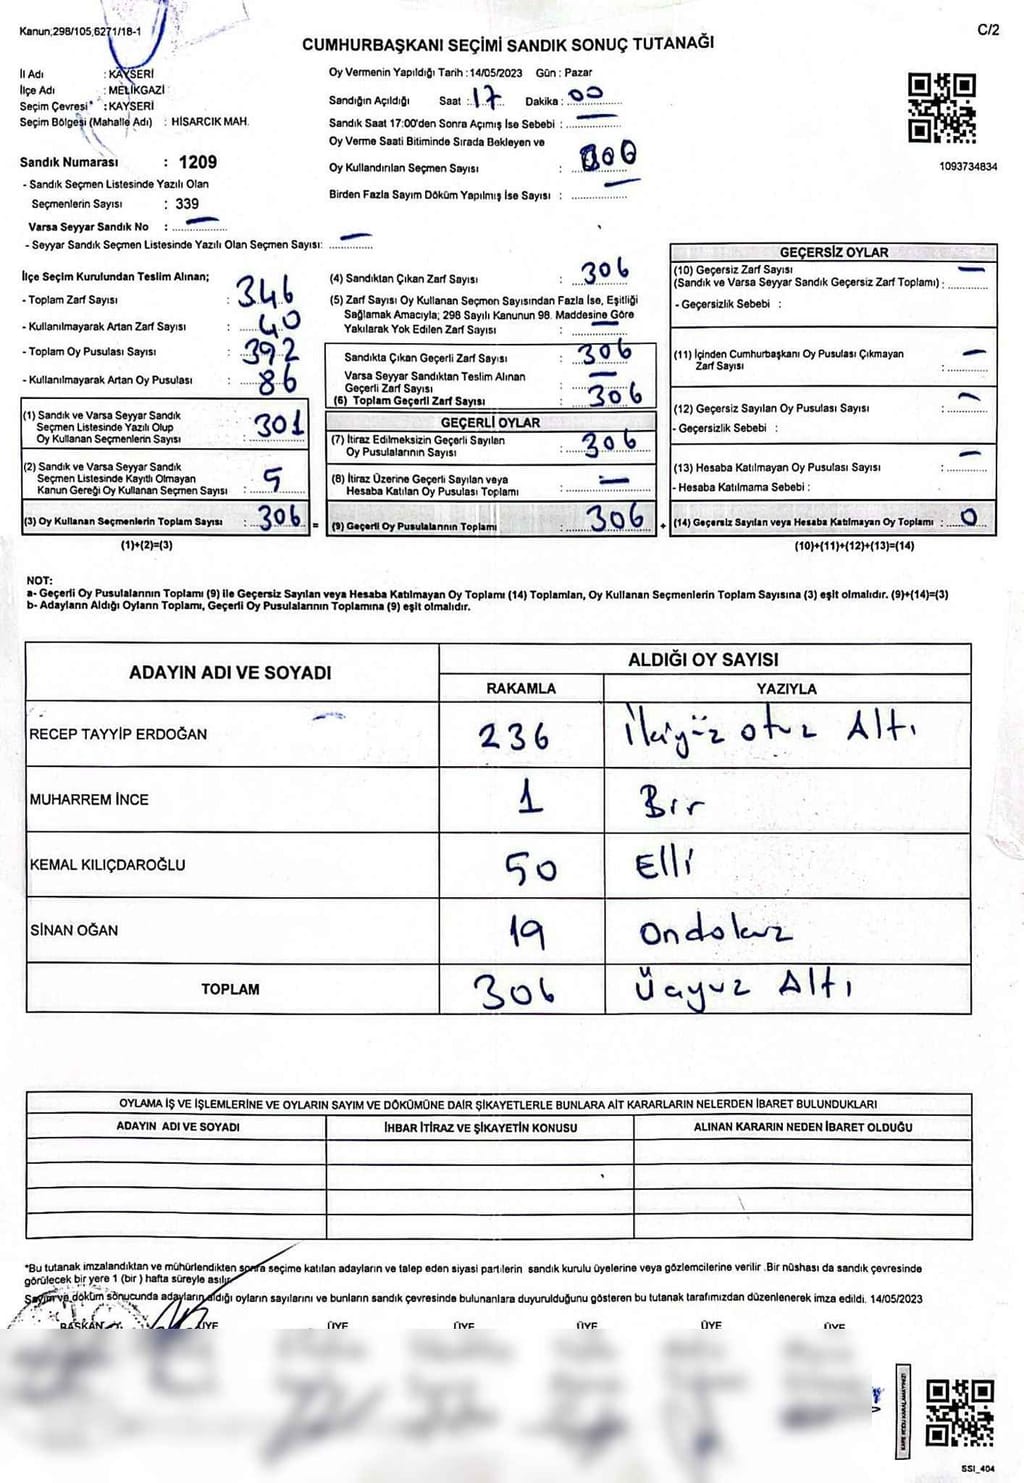 Kanun,298/105,6271/18-1
C/2
CUMHURBAŞKANI SEÇİMİ SANDIK SONUÇ TUTANAĞI
İl Adı : KAYSERİ
İlçe Adı : MELİKGAZİ
Seçim Çevresi* : KAYSERİ
Seçim Bölgesi (Mahalle Adı) : HİSARCIK MAH.
Sandık Numarası : 1209
- Sandık Seçmen Listesinde Yazılı Olan
Seçmenlerin Sayısı : 339
Varsa Seyyar Sandık No : —
- Seyyar Sandık Seçmen Listesinde Yazılı Olan Seçmen Sayısı: —
Oy Vermenin Yapıldığı Tarih : 14/05/2023 Gün : Pazar
Sandığın Açıldığı Saat : 17 Dakika : 00
Sandık Saat 17:00'den Sonra Açımış İse Sebebi : —
Oy Verme Saati Bitiminde Sırada Bekleyen ve
Oy Kullandırılan Seçmen Sayısı : 000
Birden Fazla Sayım Döküm Yapılmış İse Sayısı : —
1093734834
İlçe Seçim Kurulundan Teslim Alınan;
- Toplam Zarf Sayısı : 346
- Kullanılmayarak Artan Zarf Sayısı : 40
- Toplam Oy Pusulası Sayısı : 392
- Kullanılmayarak Artan Oy Pusulası : 86
(1) Sandık ve Varsa Seyyar Sandık
Seçmen Listesinde Yazılı Olup
Oy Kullanan Seçmenlerin Sayısı : 301
(2) Sandık ve Varsa Seyyar Sandık
Seçmen Listesinde Kayıtlı Olmayan
Kanun Gereği Oy Kullanan Seçmen Sayısı : 5
(3) Oy Kullanan Seçmenlerin Toplam Sayısı : 306 =
(1)+(2)=(3)
(4) Sandıktan Çıkan Zarf Sayısı : 306
(5) Zarf Sayısı Oy Kullanan Seçmen Sayısından Fazla İse, Eşitliği
Sağlamak Amacıyla; 298 Sayılı Kanunun 98. Maddesine Göre
Yakılarak Yok Edilen Zarf Sayısı : —
Sandıkta Çıkan Geçerli Zarf Sayısı : 306
Varsa Seyyar Sandıktan Teslim Alınan
Geçerli Zarf Sayısı : —
(6) Toplam Geçerli Zarf Sayısı : 306
GEÇERLİ OYLAR
(7) İtiraz Edilmeksizin Geçerli Sayılan
Oy Pusulalarının Sayısı : 306
(8) İtiraz Üzerine Geçerli Sayılan veya
Hesaba Katılan Oy Pusulası Toplamı : —
(9) Geçerli Oy Pusulalarının Toplamı : 306 +
GEÇERSİZ OYLAR
(10) Geçersiz Zarf Sayısı
(Sandık ve Varsa Seyyar Sandık Geçersiz Zarf Toplamı) : —
- Geçersizlik Sebebi :
(11) İçinden Cumhurbaşkanı Oy Pusulası Çıkmayan
Zarf Sayısı : —
(12) Geçersiz Sayılan Oy Pusulası Sayısı : —
- Geçersizlik Sebebi :
(13) Hesaba Katılmayan Oy Pusulası Sayısı : —
- Hesaba Katılmama Sebebi :
(14) Geçersiz Sayılan veya Hesaba Katılmayan Oy Toplamı : 0
(10)+(11)+(12)+(13)=(14)
NOT:
a- Geçerli Oy Pusulalarının Toplamı (9) ile Geçersiz Sayılan veya Hesaba Katılmayan Oy Toplamı (14) Toplamları, Oy Kullanan Seçmenlerin Toplam Sayısına (3) eşit olmalıdır. (9)+(14)=(3)
b- Adayların Aldığı Oyların Toplamı, Geçerli Oy Pusulalarının Toplamına (9) eşit olmalıdır.
ADAYIN ADI VE SOYADI
ALDIĞI OY SAYISI
RAKAMLA YAZIYLA
RECEP TAYYİP ERDOĞAN 236 İkiyüz otuz Altı
MUHARREM İNCE 1 Bir
KEMAL KILIÇDAROĞLU 50 Elli
SİNAN OĞAN 19 Ondokuz
TOPLAM 306 Üçyüz Altı
OYLAMA İŞ VE İŞLEMLERİNE VE OYLARIN SAYIM VE DÖKÜMÜNE DAİR ŞİKAYETLERLE BUNLARA AİT KARARLARIN NELERDEN İBARET BULUNDUKLARI
ADAYIN ADI VE SOYADI İHBAR İTİRAZ VE ŞİKAYETİN KONUSU ALINAN KARARIN NEDEN İBARET OLDUĞU
*Bu tutanak imzalandıktan ve mühürlendikten sonra seçime katılan adayların ve talep eden siyasi partilerin sandık kurulu üyelerine veya gözlemcilerine verilir .Bir nüshası da sandık çevresinde
görülecek bir yere 1 (bir ) hafta süreyle asılır.
Sayım ve döküm sonucunda adayların aldığı oyların sayılarını ve bunların sandık çevresinde bulunanlara duyurulduğunu gösteren bu tutanak tarafımızdan düzenlenerek imza edildi. 14/05/2023
BAŞKAN ÜYE ÜYE ÜYE ÜYE ÜYE ÜYE
KARE KODU KARALAMAYINIZ!
SSI_404